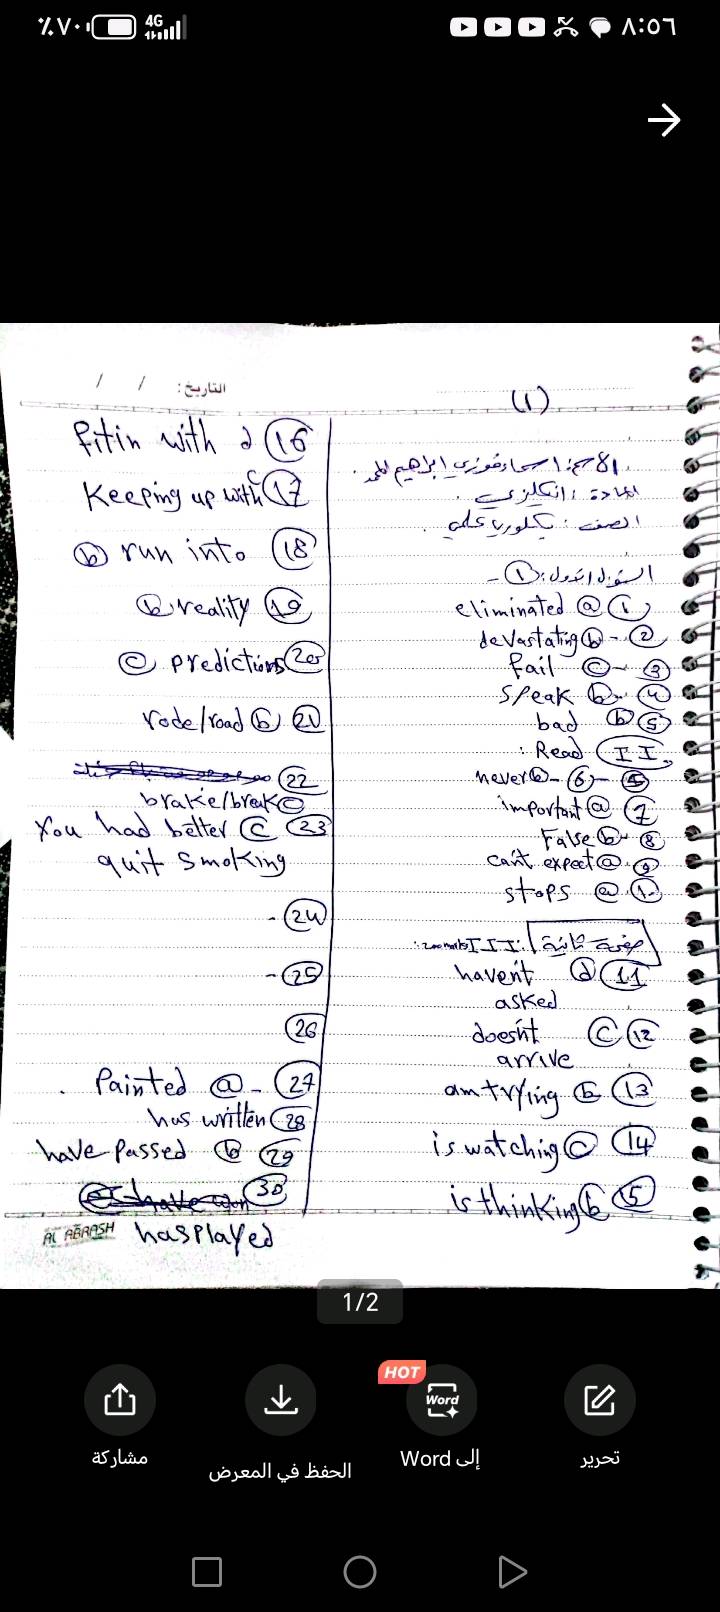 ٪٧٠ 4G ٨:٥٦
التاريخ: / /
(١)
المادة: انكليزي.
السؤال الاول: ①-
eliminated ⓐ ①
devastating ⓑ - ②
fail ⓒ - ③
speak ⓑ - ④
bad ⓑ ⑤
: Read II.
never ⓑ - ⑥ -
important ⓐ ⑦
False ⓑ - ⑧
can't expect ⓐ . ⑨
stops ⓐ . ⑩
III: صفحة ثانية
haven't ⓓ ⑪
asked
doesn't ⓒ ⑫
arrive
am trying ⓑ ⑬
is watching ⓒ ⑭
is thinking ⓑ ⑮
fit in with d ⑯
Keeping up with c ⑰
ⓑ run into ⑱
ⓑ reality ⑲
ⓒ predictions ⑳
rode/road ⓑ ㉑
㉒
brake/break ⓒ
You had better ⓒ ㉓
quit smoking
- ㉔
- ㉕
㉖
. Painted ⓐ - ㉗
has written ㉘
have passed ⓑ ㉙
㉚
has played
AL ABRASH
1/2
HOT
Word
تحرير
إلى Word
الحفظ في المعرض
مشاركة